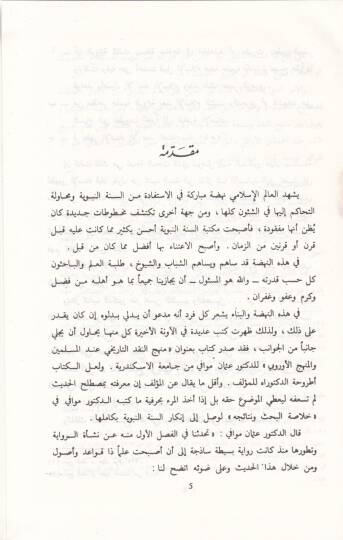 مقدمة
يشهد العالم الإسلامي نهضة مباركة في الاستفادة من السنة النبوية ومحاولة
التحاكم إليها في الشئون كلها ، ومن جهة أخرى تكتشف مخطوطات جديدة كان
يُظن أنها مفقودة ، فأصبحت مكتبة السنة النبوية أحسن بكثير مما كانت عليه قبل
قرن أو قرنين من الزمان . وأصبح الاعتناء بها أفضل مما كان من قبل .
في هذه النهضة قد ساهم ويساهم الشباب والشيوخ ، طلبة العلم والباحثون
كل حسب قدرته ــ والله هو المسئول ــ أن يجازينا جميعاً بما هو أهله من فضل
وكرم وعفو وغفران .
في هذه النهضة والبناء يشعر كل فرد أنه مدعو أن يدلي بدلوه إن كان يقدر
على ذلك ، ولذلك ظهرت كتب عديدة في الآونة الأخيرة كل منها يحاول أن يجلي
جانباً من الجوانب ، فقد صدر كتاب بعنوان « منهج النقد التاريخي عند المسلمين
والمنهج الأوروبي » للدكتور عثمان موافي من جامعة الاسكندرية . ولعل الكتاب
أطروحة الدكتوراه للمؤلف . وأقل ما يقال عن المؤلف إن معرفته بمصطلح الحديث
لم تسعفه ليعطي الموضوع حقه بل إذا أخذ المرء بحرفية ما كتبه الدكتور موافي في
« خلاصة البحث ونتائجه » لوصل إلى إنكار السنة النبوية بكاملها .
قال الدكتور عثمان موافي : « تحدثنا في الفصل الأول منه عن نشأة الرواية
وتطورها منذ كانت رواية بسيطة ساذجة إلى أن أصبحت علماً ذا قواعد وأصول
ومن خلال هذا الحديث وعلى ضوئه اتضح لنا :
5